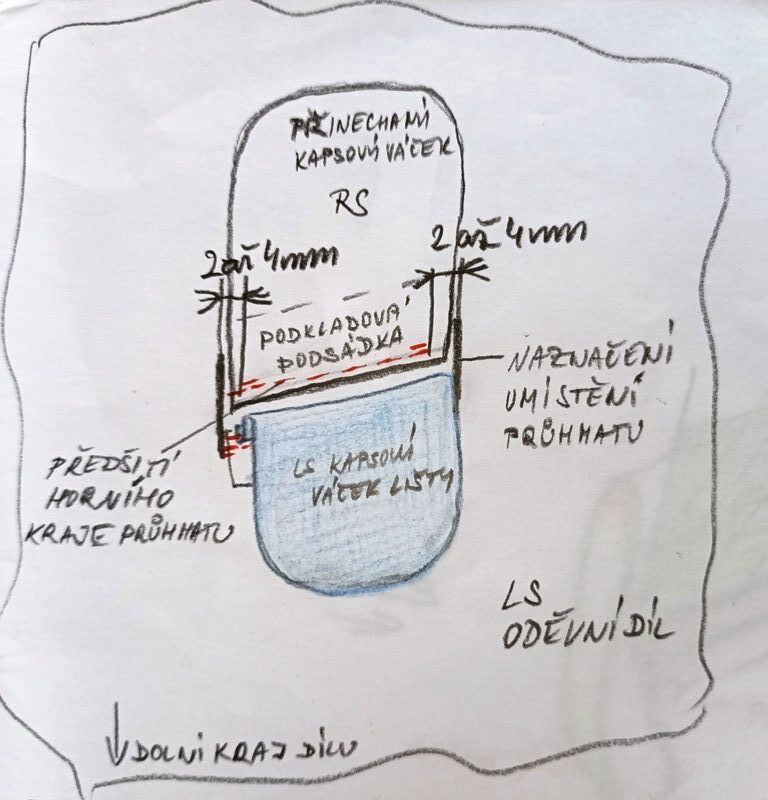 PŘINECHANÍ
KAPSOVÝ VÁČEK
RS
2 až 4mm
2 až 4mm
PODKLADOVÁ
PODSÁDKA
NAZNAČENÍ
UMÍSTĚNÍ
PRŮHMATU
PŘEDŠITÍ
HORNÍHO
KRAJE PRŮHMATU
LS KAPSOVÍ
VÁČEK LIŠTY
LS
ODĚVNÍ DÍL
DOLNÍ KRAJ DÍLU